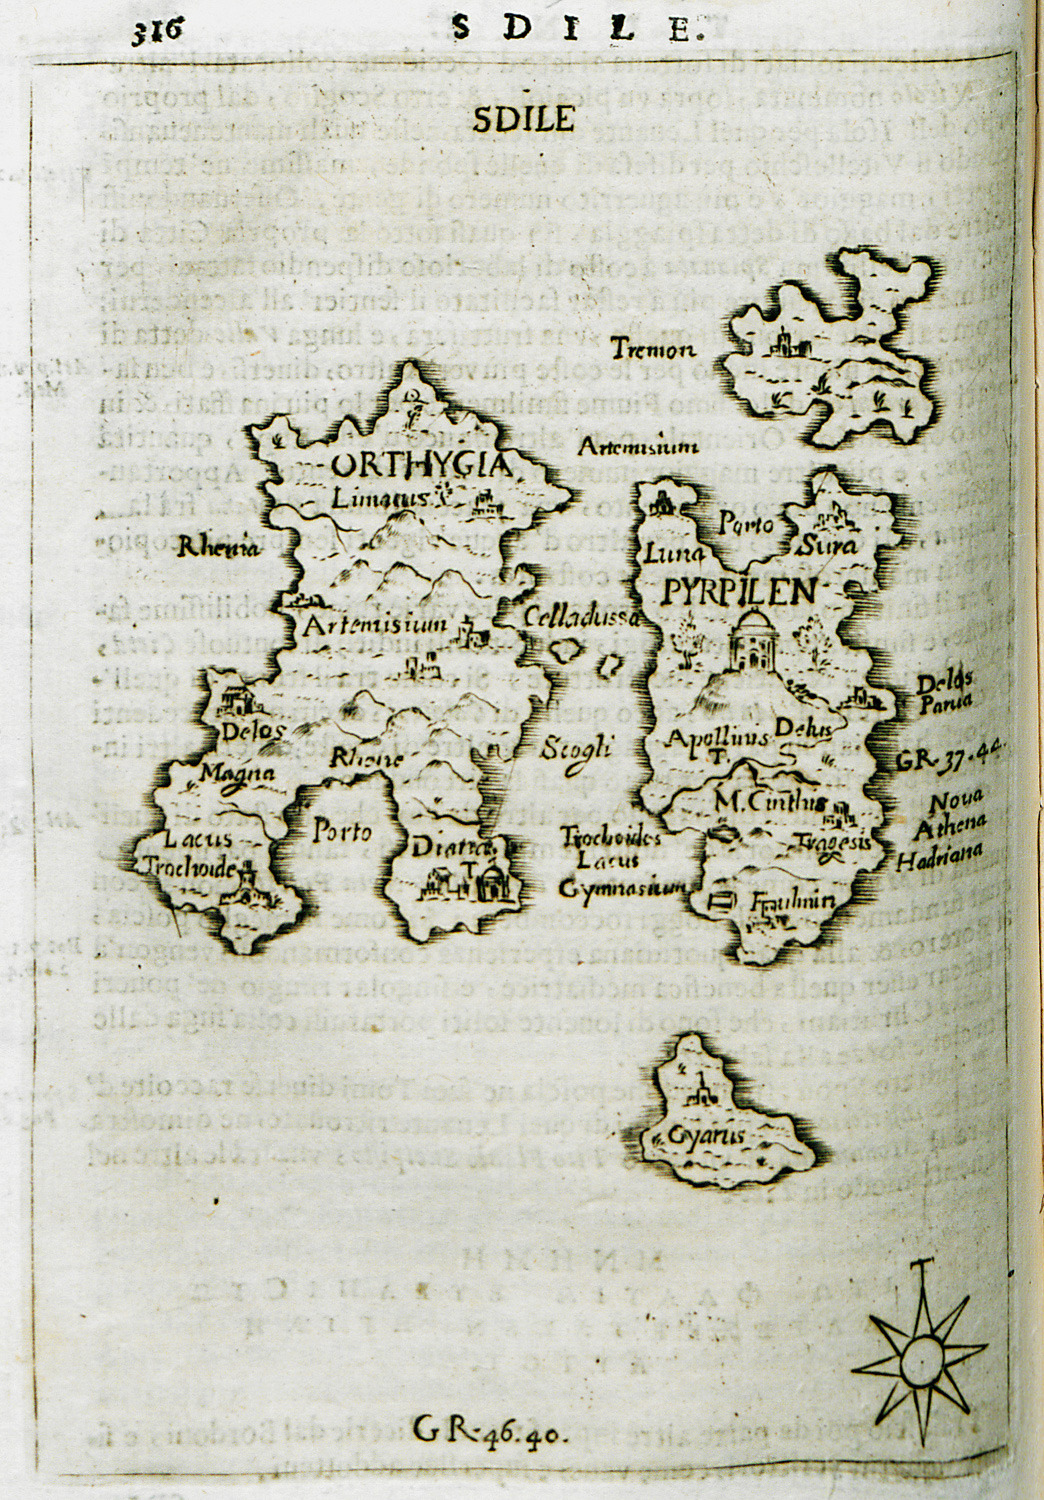 316
SDILE.
SDILE
Tremon
Artemisium
ORTHYGIA
Limacus
Rhenia
Porto
Luna
Sura
PYRPILEN
Celladussa
Artemisium
Delos
Magna
Rhene
Scogli
Apollinis
Delus
T.
Delos
Parua
GR. 37.44.
M. Cinthus
Tragesis
Noua
Athena
Hadriana
Lacus
Trochoide
Porto
Diatra
T
Trochoides
Lacus
Gymnasium
Gyarus
T
GR. 46.40.